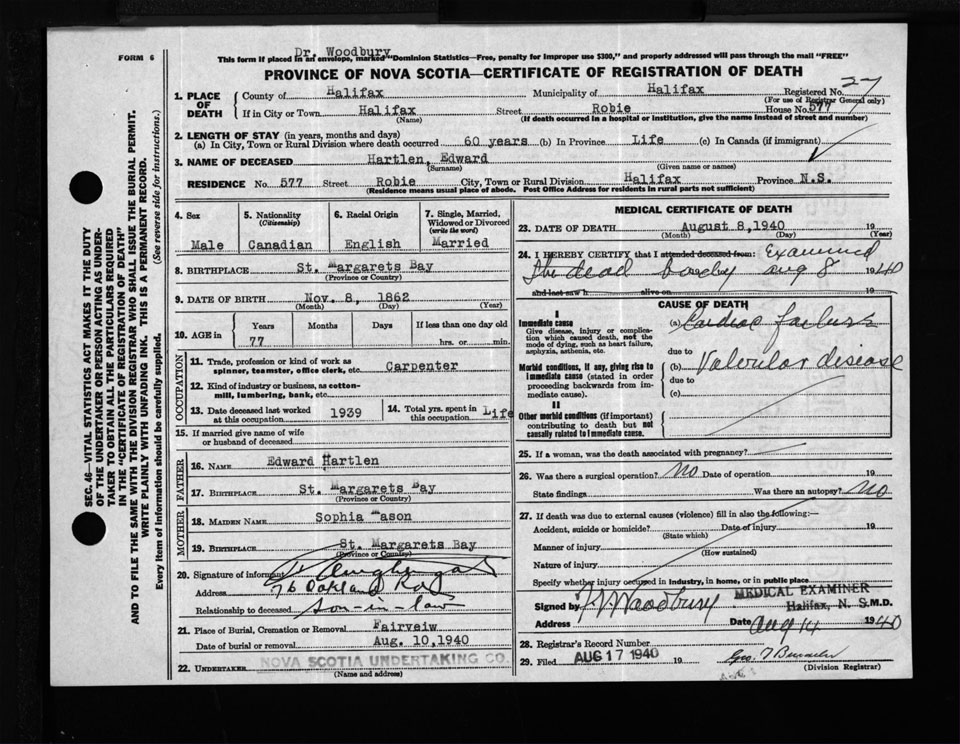 FORM 6
Dr. Woodbury
This form if placed in an envelope, marked "Dominion Statistics—Free, penalty for improper use $300," and properly addressed will pass through the mail "FREE"
PROVINCE OF NOVA SCOTIA—CERTIFICATE OF REGISTRATION OF DEATH
27
1. PLACE OF DEATH
County of Halifax Municipality of Halifax Registered No.
(For use of Registrar General only)
If in City or Town Halifax Street Robie House No. 577
(Name) (If death occurred in a hospital or institution, give the name instead of street and number)
2. LENGTH OF STAY (in years, months and days)
(a) In City, Town or Rural Division where death occurred 60 years (b) In Province Life (c) In Canada (if immigrant)
3. NAME OF DECEASED Hartlen, Edward
(Surname) (Given name or names)
RESIDENCE No. 577 Street Robie City, Town or Rural Division Halifax Province N.S.
(Residence means usual place of abode. Post Office Address for residents in rural parts not sufficient)
SEC. 46—VITAL STATISTICS ACT MAKES IT THE DUTY
OF THE UNDERTAKER OR PERSON ACTING AS UNDER-
TAKER TO OBTAIN ALL THE PARTICULARS REQUIRED
IN THE "CERTIFICATE OF REGISTRATION OF DEATH"
AND TO FILE THE SAME WITH THE DIVISION REGISTRAR WHO SHALL ISSUE THE BURIAL PERMIT.
WRITE PLAINLY WITH UNFADING INK. THIS IS A PERMANENT RECORD.
Every item of information should be carefully supplied. (See reverse side for instructions.)
4. Sex
Male
5. Nationality
(Citizenship)
Canadian
6. Racial Origin
English
7. Single, Married,
Widowed or Divorced
(write the word)
Married
8. BIRTHPLACE St. Margarets Bay
(Province or Country)
9. DATE OF BIRTH Nov. 8, 1862
(Month) (Day) (Year)
10. AGE in
Years Months Days If less than one day old
77 hrs. or min.
OCCUPATION
11. Trade, profession or kind of work as
spinner, teamster, office clerk, etc. Carpenter
12. Kind of industry or business, as cotton-
mill, lumbering, bank, etc.
13. Date deceased last worked
at this occupation 1939
14. Total yrs. spent in
this occupation Life
15. If married give name of wife
or husband of deceased
FATHER
16. NAME Edward Hartlen
17. BIRTHPLACE St. Margarets Bay
(Province or Country)
MOTHER
18. MAIDEN NAME Sophia Mason
19. BIRTHPLACE St. Margarets Bay
(Province or Country)
20. Signature of informant
Address 76 Oakland Rd
Relationship to deceased son-in-law
21. Place of Burial, Cremation or Removal Fairveiw
Date of burial or removal Aug. 10, 1940
22. UNDERTAKER NOVA SCOTIA UNDERTAKING CO.
(Name and address)
MEDICAL CERTIFICATE OF DEATH
23. DATE OF DEATH August 8, 1940
(Month) (Day) (Year)
24. I HEREBY CERTIFY that I attended deceased from: Examined
the dead body aug 8 1940
and last saw h alive on 19
CAUSE OF DEATH
I
Immediate cause
Give disease, injury or complica-
tion which caused death, not the
mode of dying, such as heart failure,
asphyxia, asthenia, etc.
(a) Cardiac failure
due to
Morbid conditions, if any, giving rise to
immediate cause (stated in order
proceeding backwards from im-
mediate cause).
(b) Valvular disease
due to
(c)
II
Other morbid conditions (if important)
contributing to death but not
causally related to immediate cause.
25. If a woman, was the death associated with pregnancy?
26. Was there a surgical operation? No Date of operation 19
State findings Was there an autopsy? No
27. If death was due to external causes (violence) fill in also the following:—
Accident, suicide or homicide? Date of injury 19
(State which)
Manner of injury
(How sustained)
Nature of injury
Specify whether injury occurred in industry, in home, or in public place
MEDICAL EXAMINER
Signed by Woodbury Halifax, N. S. M.D.
Address Date Aug 14 1940
28. Registrar's Record Number
29. Filed AUG 17 1940 19
(Division Registrar)